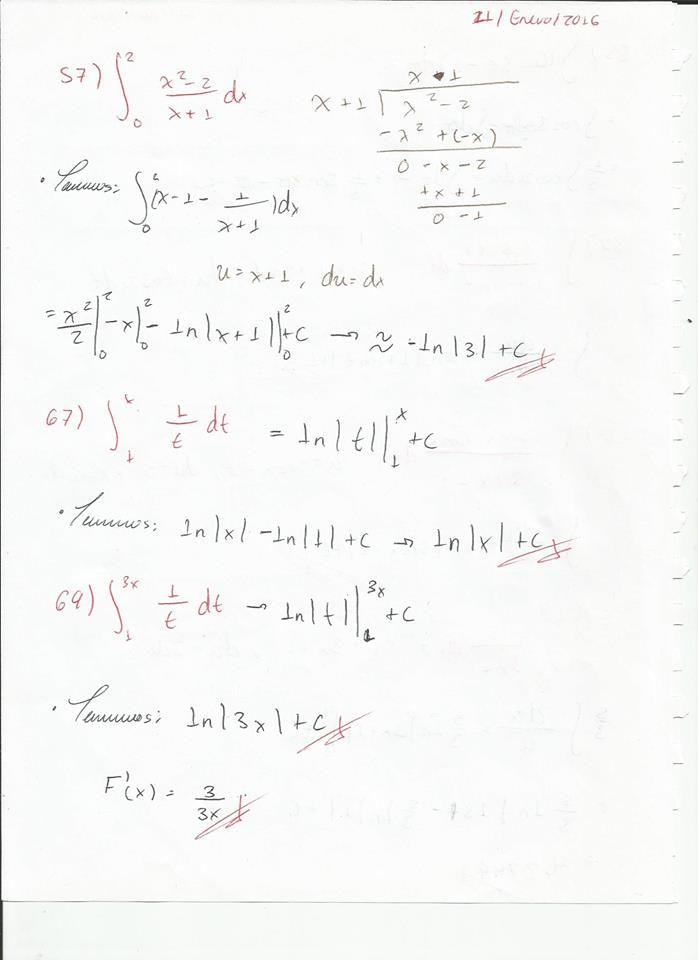 11/Enero/2016
57) ∫₀² (x²-2)/(x+1) dx
x - 1
x+1 ) x² - 2
-x² +(-x)
0 - x - 2
+x + 1
0 - 1
· Tenemos: ∫₀² (x - 1 - 1/(x+1))dx
u = x+1, du = dx
= x²/2 |₀² - x |₀² - ln|x+1| |₀² + C → ≈ -ln|3| + C
67) ∫₁ˣ 1/t dt = ln|t| |₁ˣ + C
· Tenemos: ln|x| - ln|1| + C → ln|x| + C
69) ∫₁³ˣ 1/t dt → ln|t| |₁³ˣ + C
· Tenemos: ln|3x| + C
F'(x) = 3/3x